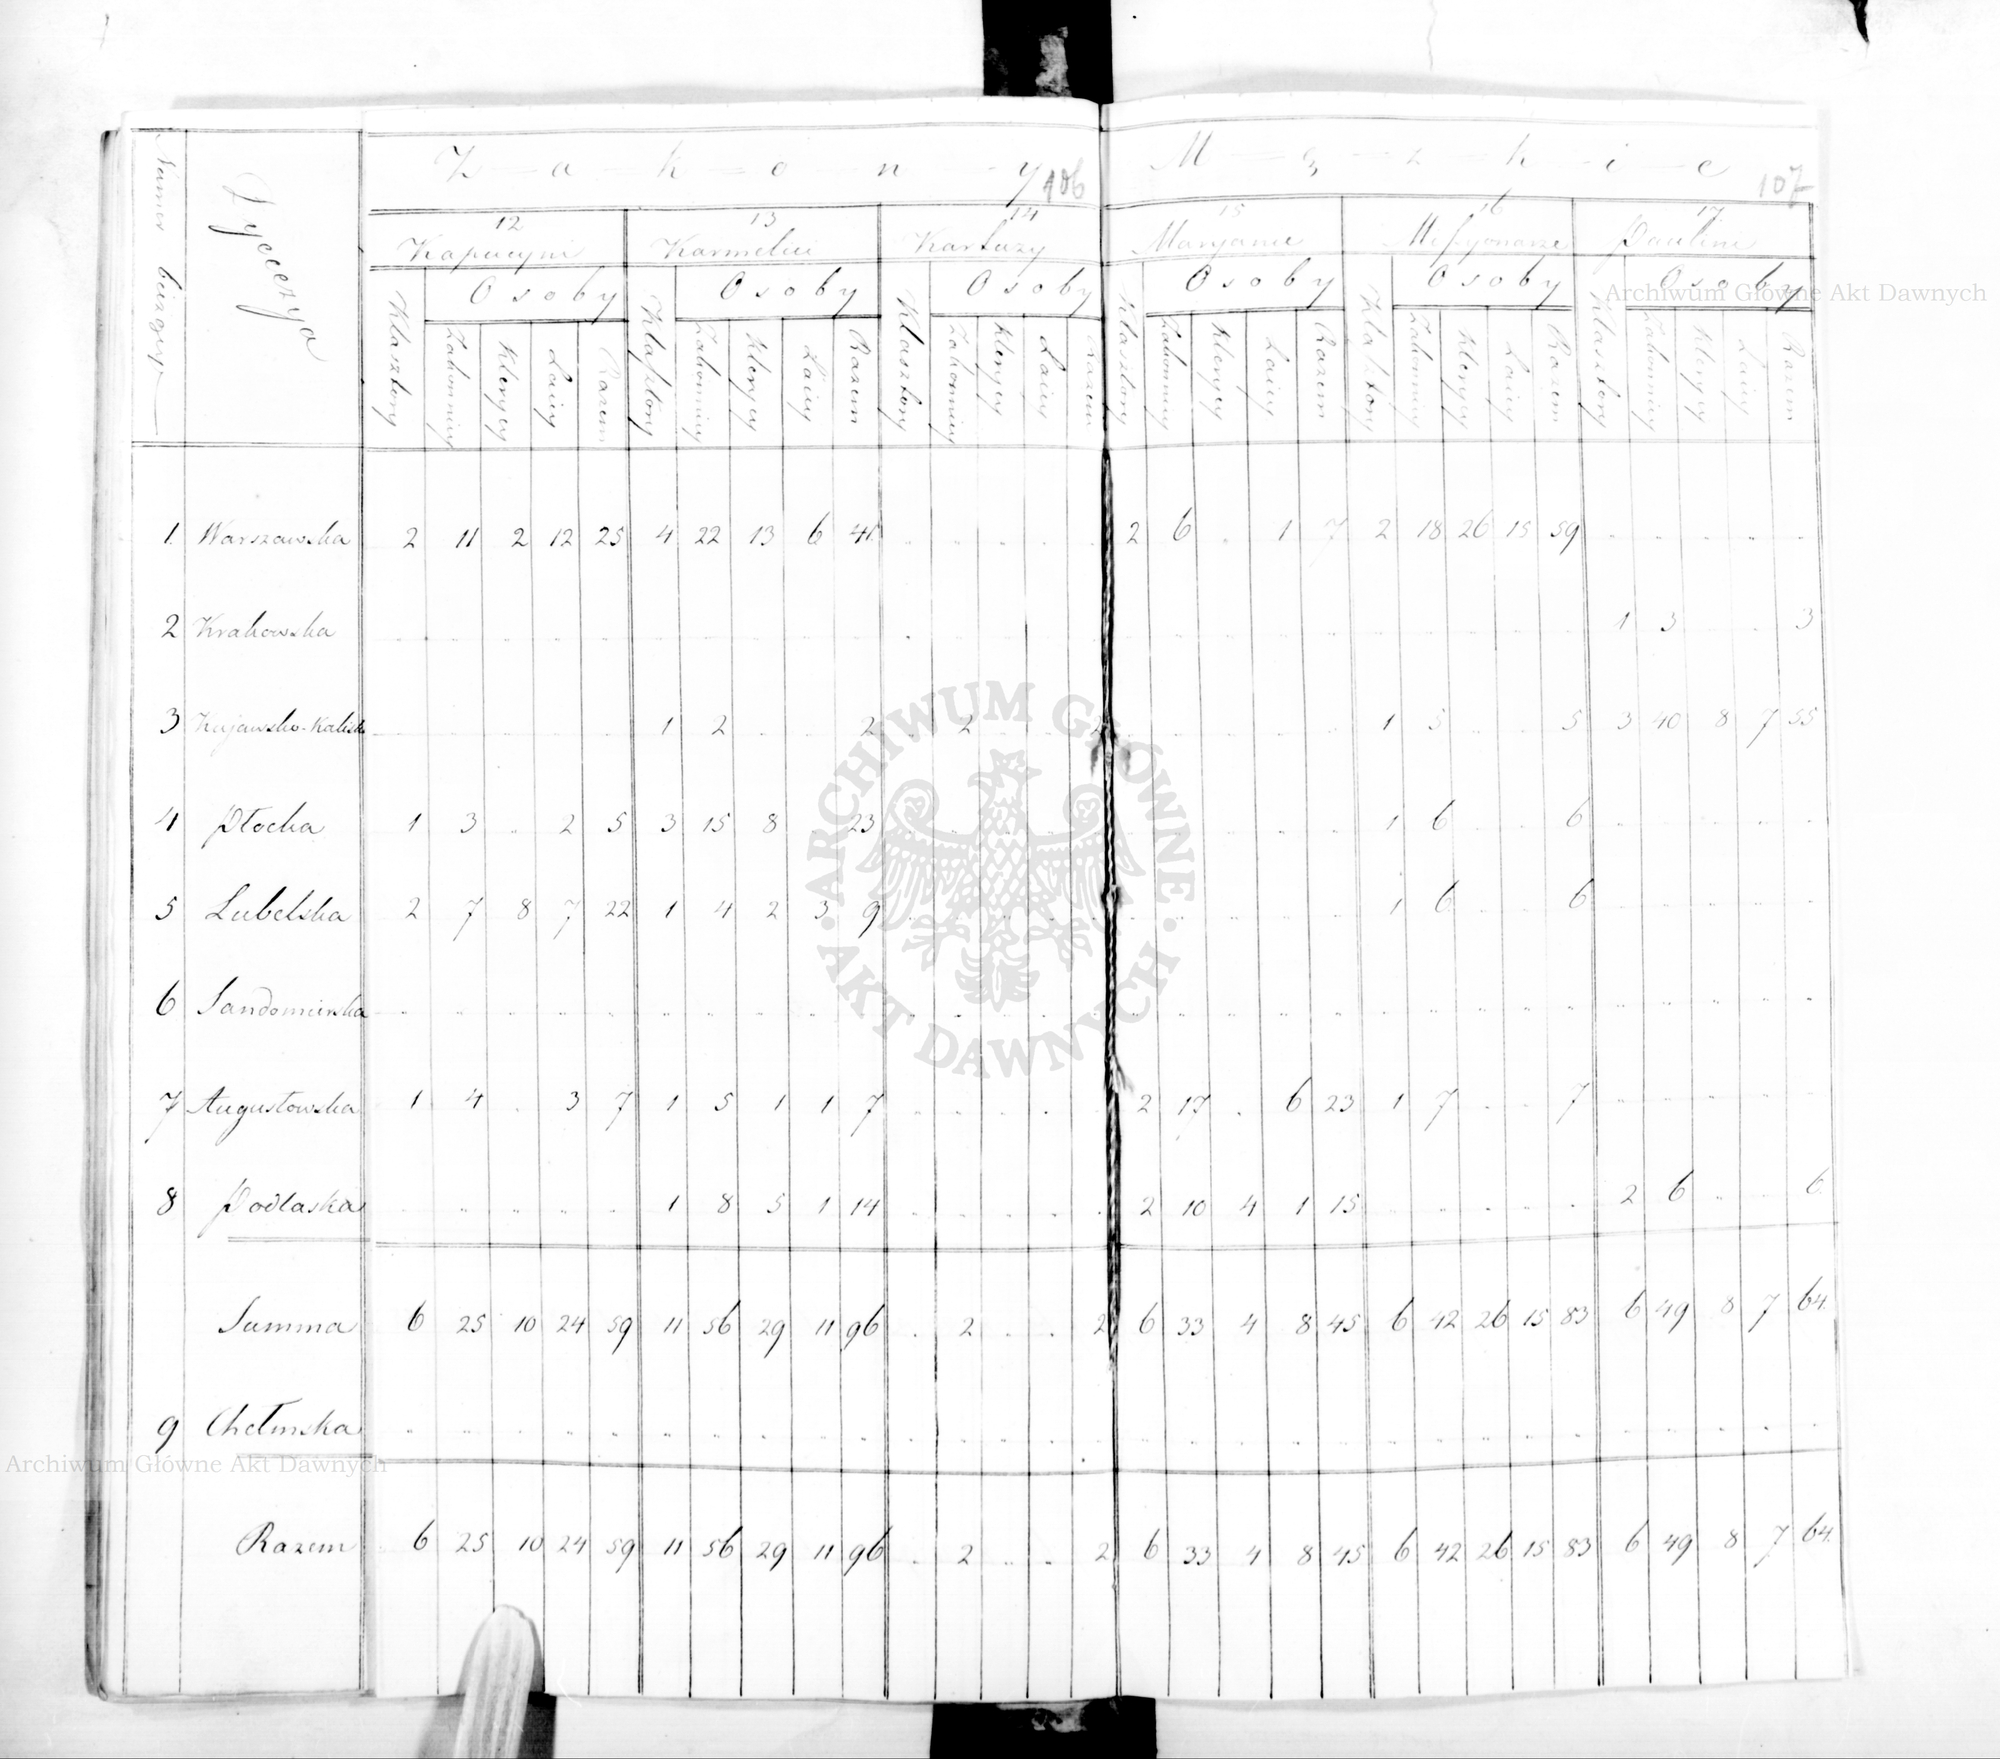 Z a k o n y 106 M ę z k i e 107
Numer bieżący Dyecezya
12 13 14 15 16 17
Kapucyni Karmelici Kartuzy Maryanie Missyonarze Paulini
Osoby Osoby Osoby Osoby Osoby Osoby
Klasztory Zakonnicy Klerycy Laicy Razem Klasztory Zakonnicy Klerycy Laicy Razem Klasztory Zakonnicy Klerycy Laicy Razem Klasztory Zakonnicy Klerycy Laicy Razem Klasztory Zakonnicy Klerycy Laicy Razem Klasztory Zakonnicy Klerycy Laicy Razem
1. Warszawska 2 11 2 12 25 4 22 13 6 41 . . . . . 2 6 . 1 7 2 18 26 15 59 . . . . .
2 Krakowska . . . . . . . . . . . . . . . . . . . . . . . . . 1 3 . . 3
3 Kujawsko-Kaliska . . . . . 1 2 . . 2 . 2 . . 2 . . . . . 1 5 . . 5 3 40 8 7 55
4 Płocka 1 3 . 2 5 3 15 8 . 23 . . . . . . . . . . 1 6 . . 6 . . . . .
5 Lubelska 2 7 8 7 22 1 4 2 3 9 . . . . . . . . . . 1 6 . . 6 . . . . .
6 Sandomierska . . . . . . . . . . . . . . . . . . . . . . . . . . . . . .
7 Augustowska 1 4 . 3 7 1 5 1 1 7 . . . . . 2 17 . 6 23 1 7 . . 7 . . . . .
8 Podlaska . . . . . 1 8 5 1 14 . . . . . 2 10 4 1 15 . . . . . 2 6 . . 6
Summa 6 25 10 24 59 11 56 29 11 96 . 2 . . 2 6 33 4 8 45 6 42 26 15 83 6 49 8 7 64.
9 Chełmska . . . . . . . . . . . . . . . . . . . . . . . . . . . . . .
Razem 6 25 10 24 59 11 56 29 11 96 . 2 . . 2 6 33 4 8 45 6 42 26 15 83 6 49 8 7 64.
Archiwum Główne Akt Dawnych
ARCHIWUM GŁÓWNE · AKT DAWNYCH ·
Archiwum Główne Akt Dawnych